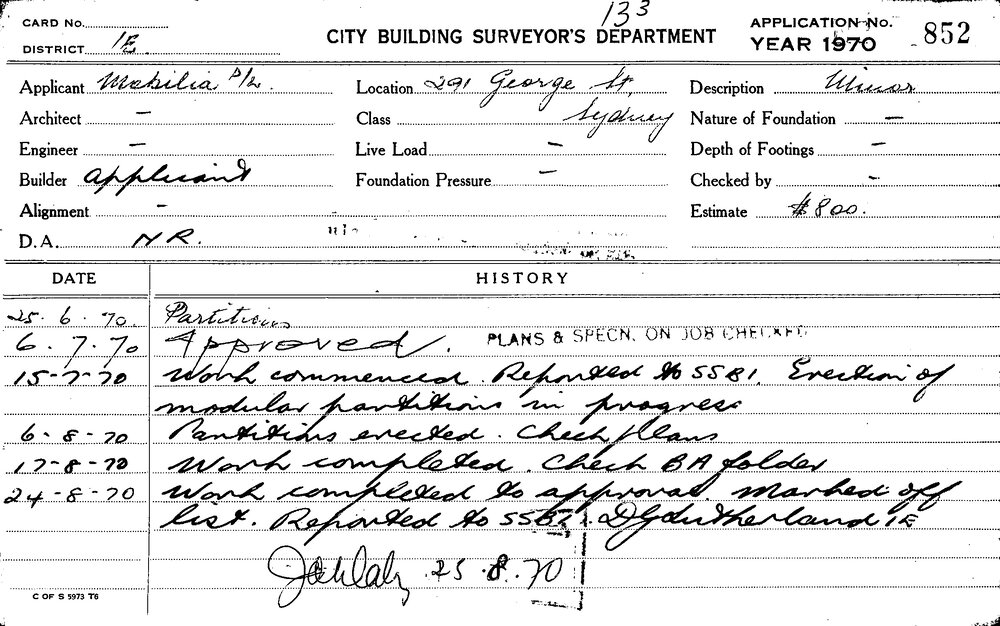 133
CARD No.
DISTRICT 1E
CITY BUILDING SURVEYOR'S DEPARTMENT
APPLICATION No.
YEAR 1970 852
Applicant Mobilia P/L. Location 291 George St, Description Minor
Architect — Class Sydney Nature of Foundation —
Engineer — Live Load — Depth of Footings —
Builder Applicant Foundation Pressure — Checked by —
Alignment — Estimate $800.
D.A. NR.
DATE HISTORY
25. 6. 70. Partitions
6. 7. 70 Approved. PLANS & SPECN. ON JOB CHECKED
15-7-70 Work commenced. Reported to SSB1. Erection of
modular partitions in progress
6-8-70 Partitions erected. Check plans
17-8-70 Work completed. Check BA folder
24-8-70 Work completed to approval. Marked off
list. Reported to SSB1. Sutherland 1E
25.8.70
C OF S 5973 T6